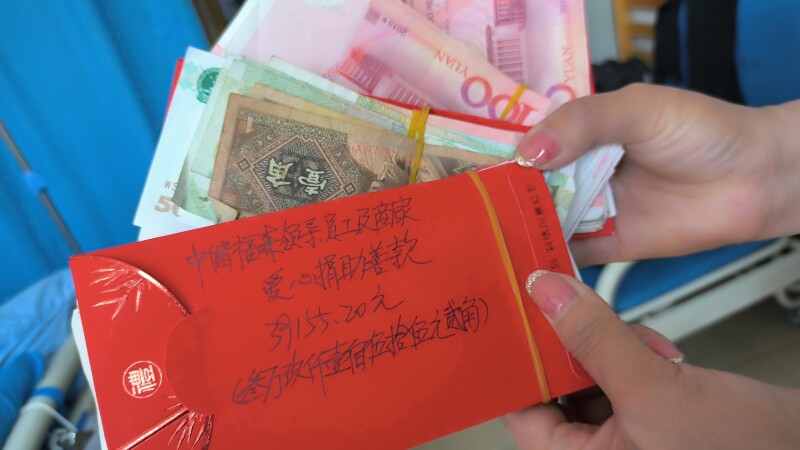 YUAN
YUAN
100
壹角
50
中储福森领导、员工及商家
爱心捐助善款
39155.20元
(叁万玖仟壹佰伍拾伍元贰角)